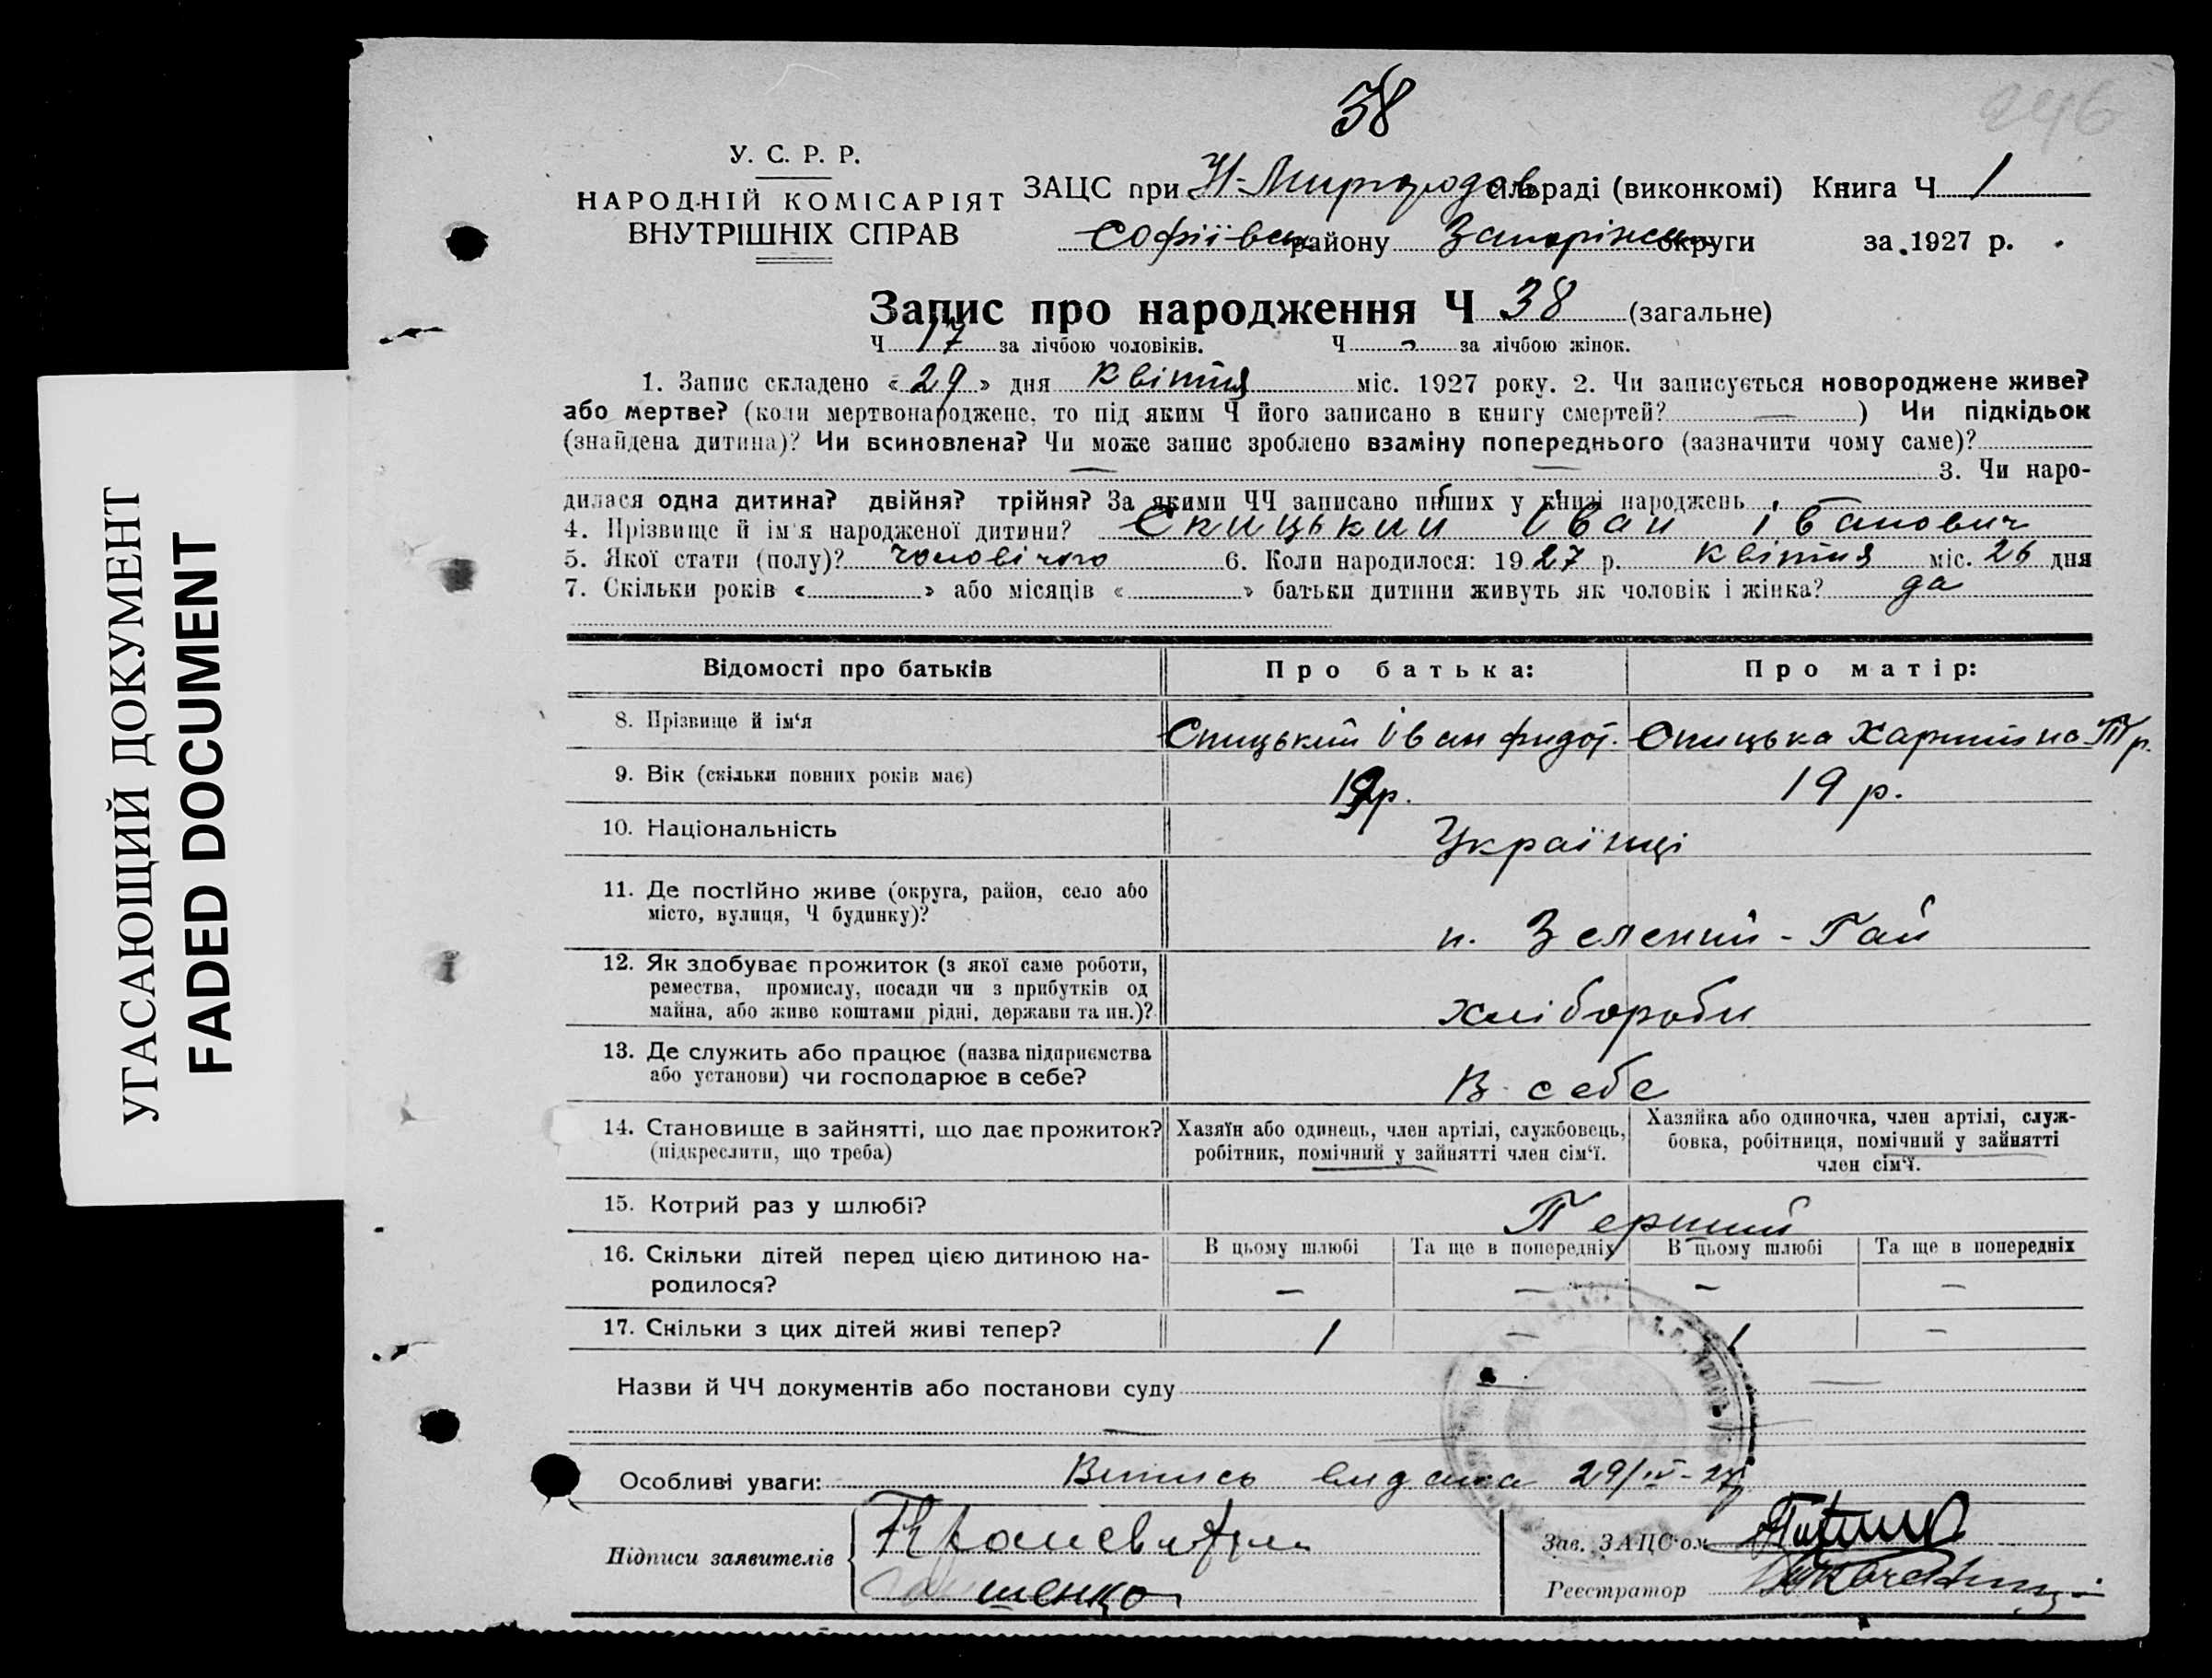 УГАСАЮЩИЙ ДОКУМЕНТ
FADED DOCUMENT
38
У. С. Р. Р.
НАРОДНІЙ КОМІСАРІЯТ
ВНУТРІШНІХ СПРАВ
ЗАЦС при Н-Миргородов сільраді (виконкомі) Книга Ч 1
Софіївськ району Запоріжськ округи за 1927 р.
Запис про народження Ч 38 (загальне)
Ч 17 за лічбою чоловіків. Ч - за лічбою жінок.
1. Запис складено «29» дня Квітня міс. 1927 року. 2. Чи записується новороджене живе?
або мертве? (коли мертвонароджене, то під яким Ч його записано в книгу смертей? —) Чи підкідьок
(знайдена дитина)? Чи всиновлена? Чи може запис зроблено взаміну попереднього (зазначити чому саме)?
— — 3. Чи наро-
дилася одна дитина? двійня? трійня? За якими ЧЧ записано инших у книзі народжень
4. Прізвище й ім'я народженої дитини? Спицький Іван Іванович
5. Якої стати (полу)? чоловічого 6. Коли народилося: 1927 р. Квітня міс. 26 дня
7. Скільки років «» або місяців «» батьки дитини живуть як чоловік і жінка? да
Відомості про батьків Про батька: Про матір:
8. Прізвище й ім'я Спицький Іван Спицька
9. Вік (скільки повних років має) 19 р.
10. Національність Українці
11. Де постійно живе (округа, район, село або
місто, вулиця, Ч будинку)? н. Зелений-Гай
12. Як здобуває прожиток (з якої саме роботи,
ремества, промислу, посади чи з прибутків од
майна, або живе коштами рідні, держави та ин.)? хлібороби
13. Де служить або працює (назва підприємства
або установи) чи господарює в себе? В себе
14. Становище в зайнятті, що дає прожиток?
(підкреслити, що треба)
Хазяїн або одинець, член артілі, службовець,
робітник, помічний у зайнятті член сім'ї.
Хазяйка або одиночка, член артілі, служ-
бовка, робітниця, помічний у зайнятті
член сім'ї.
15. Котрий раз у шлюбі? Перший
16. Скільки дітей перед цією дитиною на-
родилося?
В цьому шлюбі Та ще в попередніх В цьому шлюбі Та ще в попередніх
— — — —
17. Скільки з цих дітей живі тепер? 1 — 1 —
Назви й ЧЧ документів або постанови суду
Особливі уваги: Випись видана 29/IV-27
Підписи заявителів
Зав. ЗАЦС'ом
Реєстратор